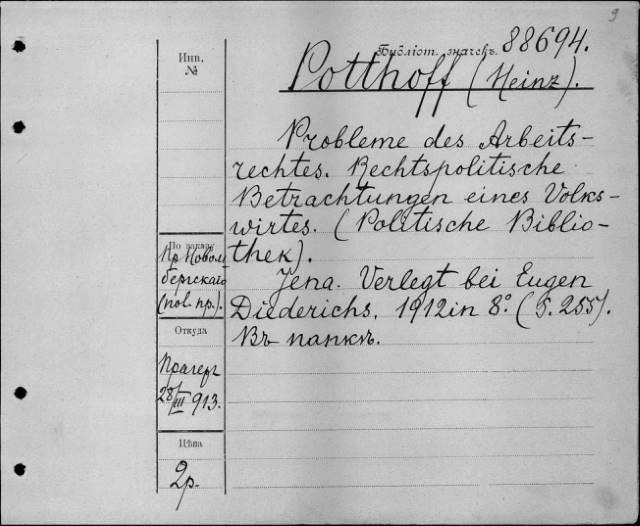 9
Библіот. значекъ. 88694.
Инв.
№
Potthoff (Heinz).
Probleme des Arbeits-
rechtes. Rechtspolitische
Betrachtungen eines Volks-
wirtes. (Politische Biblio-
thek).
Jena. Verlegt bei Eugen
Diederichs, 1912 in 8° (S. 255).
Въ папкѣ.
По заказу
Пр. Новом
бергскаго
Откуда
Прагеръ
28/III 913.
Цѣна
2р.